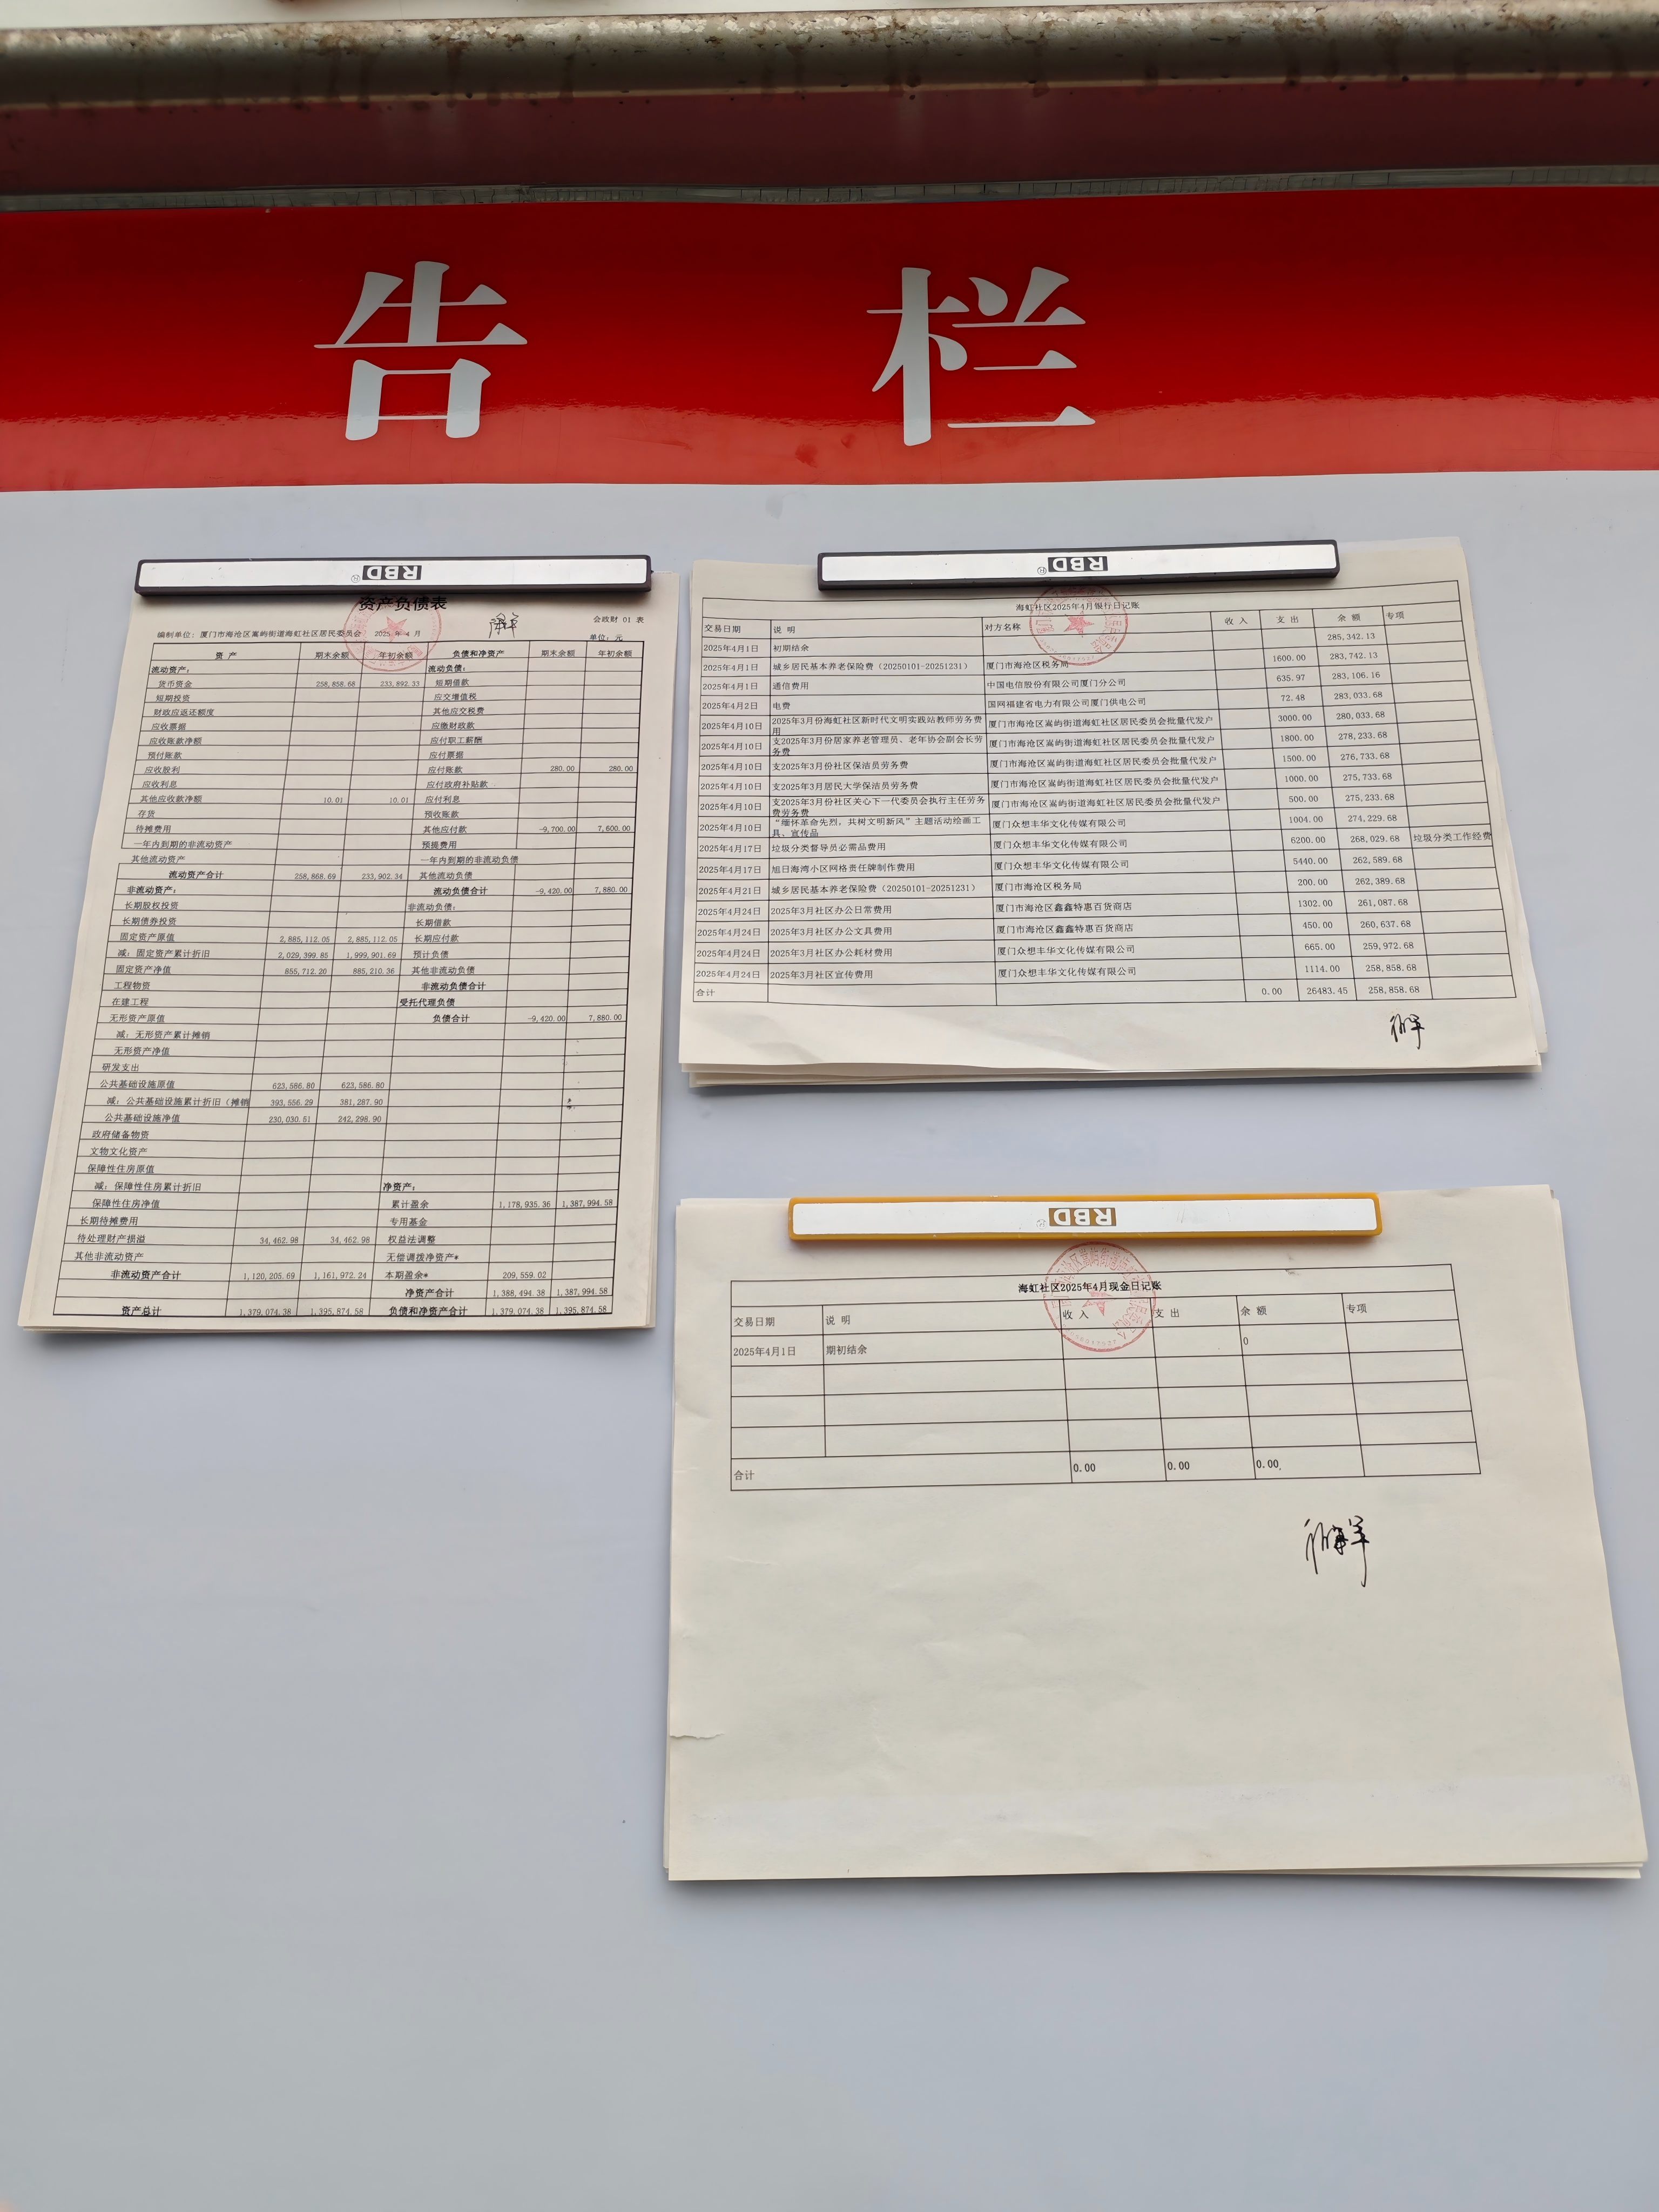 告 栏
RBD
资产负债表
会政财 01 表
编制单位：厦门市海沧区嵩屿街道海虹社区居民委员会 2025 年 4 月 单位：元
资 产 期末余额 年初余额 负债和净资产 期末余额 年初余额
流动资产： 流动负债：
货币资金 258,858.68 233,892.33 短期借款
短期投资 应交增值税
财政应返还额度 其他应交税费
应收票据 应缴财政款
应收账款净额 应付职工薪酬
预付账款 应付票据
应收股利 应付账款 280.00 280.00
应收利息 应付政府补贴款
其他应收款净额 10.01 10.01 应付利息
存货 预收账款
待摊费用 其他应付款 -9,700.00 7,600.00
一年内到期的非流动资产 预提费用
其他流动资产 一年内到期的非流动负债
流动资产合计 258,868.69 233,902.34 其他流动负债
非流动资产： 流动负债合计 -9,420.00 7,880.00
长期股权投资 非流动负债：
长期债券投资 长期借款
固定资产原值 2,885,112.05 2,885,112.05 长期应付款
减：固定资产累计折旧 2,029,399.85 1,999,901.69 预计负债
固定资产净值 855,712.20 885,210.36 其他非流动负债
工程物资 非流动负债合计
在建工程 受托代理负债
无形资产原值 负债合计 -9,420.00 7,880.00
减：无形资产累计摊销
无形资产净值
研发支出
公共基础设施原值 623,586.80 623,586.80
减：公共基础设施累计折旧（摊销 393,556.29 381,287.90
公共基础设施净值 230,030.51 242,298.90
政府储备物资
文物文化资产
保障性住房原值
减：保障性住房累计折旧 净资产：
保障性住房净值 累计盈余 1,178,935.36 1,387,994.58
长期待摊费用 专用基金
待处理财产损溢 34,462.98 34,462.98 权益法调整
其他非流动资产 无偿调拨净资产*
非流动资产合计 1,120,205.69 1,161,972.24 本期盈余* 209,559.02
净资产合计 1,388,494.38 1,387,994.58
资产总计 1,379,074.38 1,395,874.58 负债和净资产合计 1,379,074.38 1,395,874.58
RBD
海虹社区2025年4月银行日记账
交易日期 说 明 对方名称 收 入 支 出 余 额 专项
2025年4月1日 初期结余 285,342.13
2025年4月1日 城乡居民基本养老保险费（20250101-20251231） 厦门市海沧区税务局 1600.00 283,742.13
2025年4月1日 通信费用 中国电信股份有限公司厦门分公司 635.97 283,106.16
2025年4月2日 电费 国网福建省电力有限公司厦门供电公司 72.48 283,033.68
2025年4月10日 2025年3月份海虹社区新时代文明实践站教师劳务费用 厦门市海沧区嵩屿街道海虹社区居民委员会批量代发户 3000.00 280,033.68
2025年4月10日 支2025年3月份居家养老管理员、老年协会副会长劳务费 厦门市海沧区嵩屿街道海虹社区居民委员会批量代发户 1800.00 278,233.68
2025年4月10日 支2025年3月份社区保洁员劳务费 厦门市海沧区嵩屿街道海虹社区居民委员会批量代发户 1500.00 276,733.68
2025年4月10日 支2025年3月居民大学保洁员劳务费 厦门市海沧区嵩屿街道海虹社区居民委员会批量代发户 1000.00 275,733.68
2025年4月10日 支2025年3月份社区关心下一代委员会执行主任劳务费劳务费 厦门市海沧区嵩屿街道海虹社区居民委员会批量代发户 500.00 275,233.68
2025年4月10日 “缅怀革命先烈，共树文明新风”主题活动绘画工具、宣传品 厦门众想丰华文化传媒有限公司 1004.00 274,229.68
2025年4月17日 垃圾分类督导员必需品费用 厦门众想丰华文化传媒有限公司 6200.00 268,029.68 垃圾分类工作经费
2025年4月17日 旭日海湾小区网格责任牌制作费用 厦门众想丰华文化传媒有限公司 5440.00 262,589.68
2025年4月21日 城乡居民基本养老保险费（20250101-20251231） 厦门市海沧区税务局 200.00 262,389.68
2025年4月24日 2025年3月社区办公日常费用 厦门市海沧区鑫鑫特惠百货商店 1302.00 261,087.68
2025年4月24日 2025年3月社区办公文具费用 厦门市海沧区鑫鑫特惠百货商店 450.00 260,637.68
2025年4月24日 2025年3月社区办公耗材费用 厦门众想丰华文化传媒有限公司 665.00 259,972.68
2025年4月24日 2025年3月社区宣传费用 厦门众想丰华文化传媒有限公司 1114.00 258,858.68
合计 0.00 26483.45 258,858.68
RBD
海虹社区2025年4月现金日记账
交易日期 说 明 收 入 支 出 余 额 专项
2025年4月1日 期初结余 0
合计 0.00 0.00 0.00